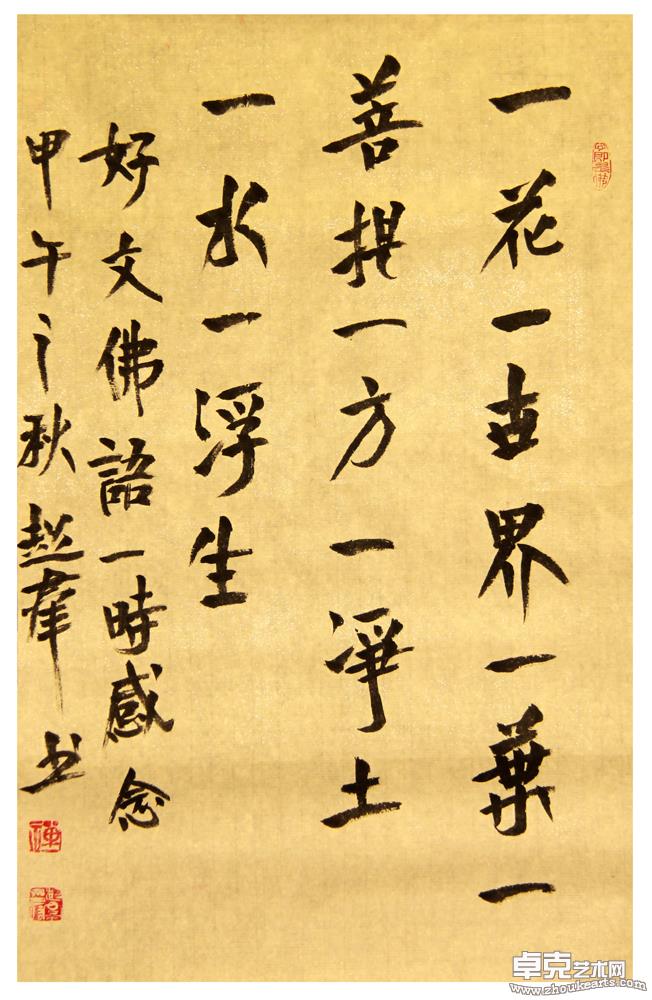 一花一世界一葉一
菩提一方一淨土
一水一浮生
好文佛語一時感念
甲午之秋趙书
卓克艺术网
www.zhoukearts.com